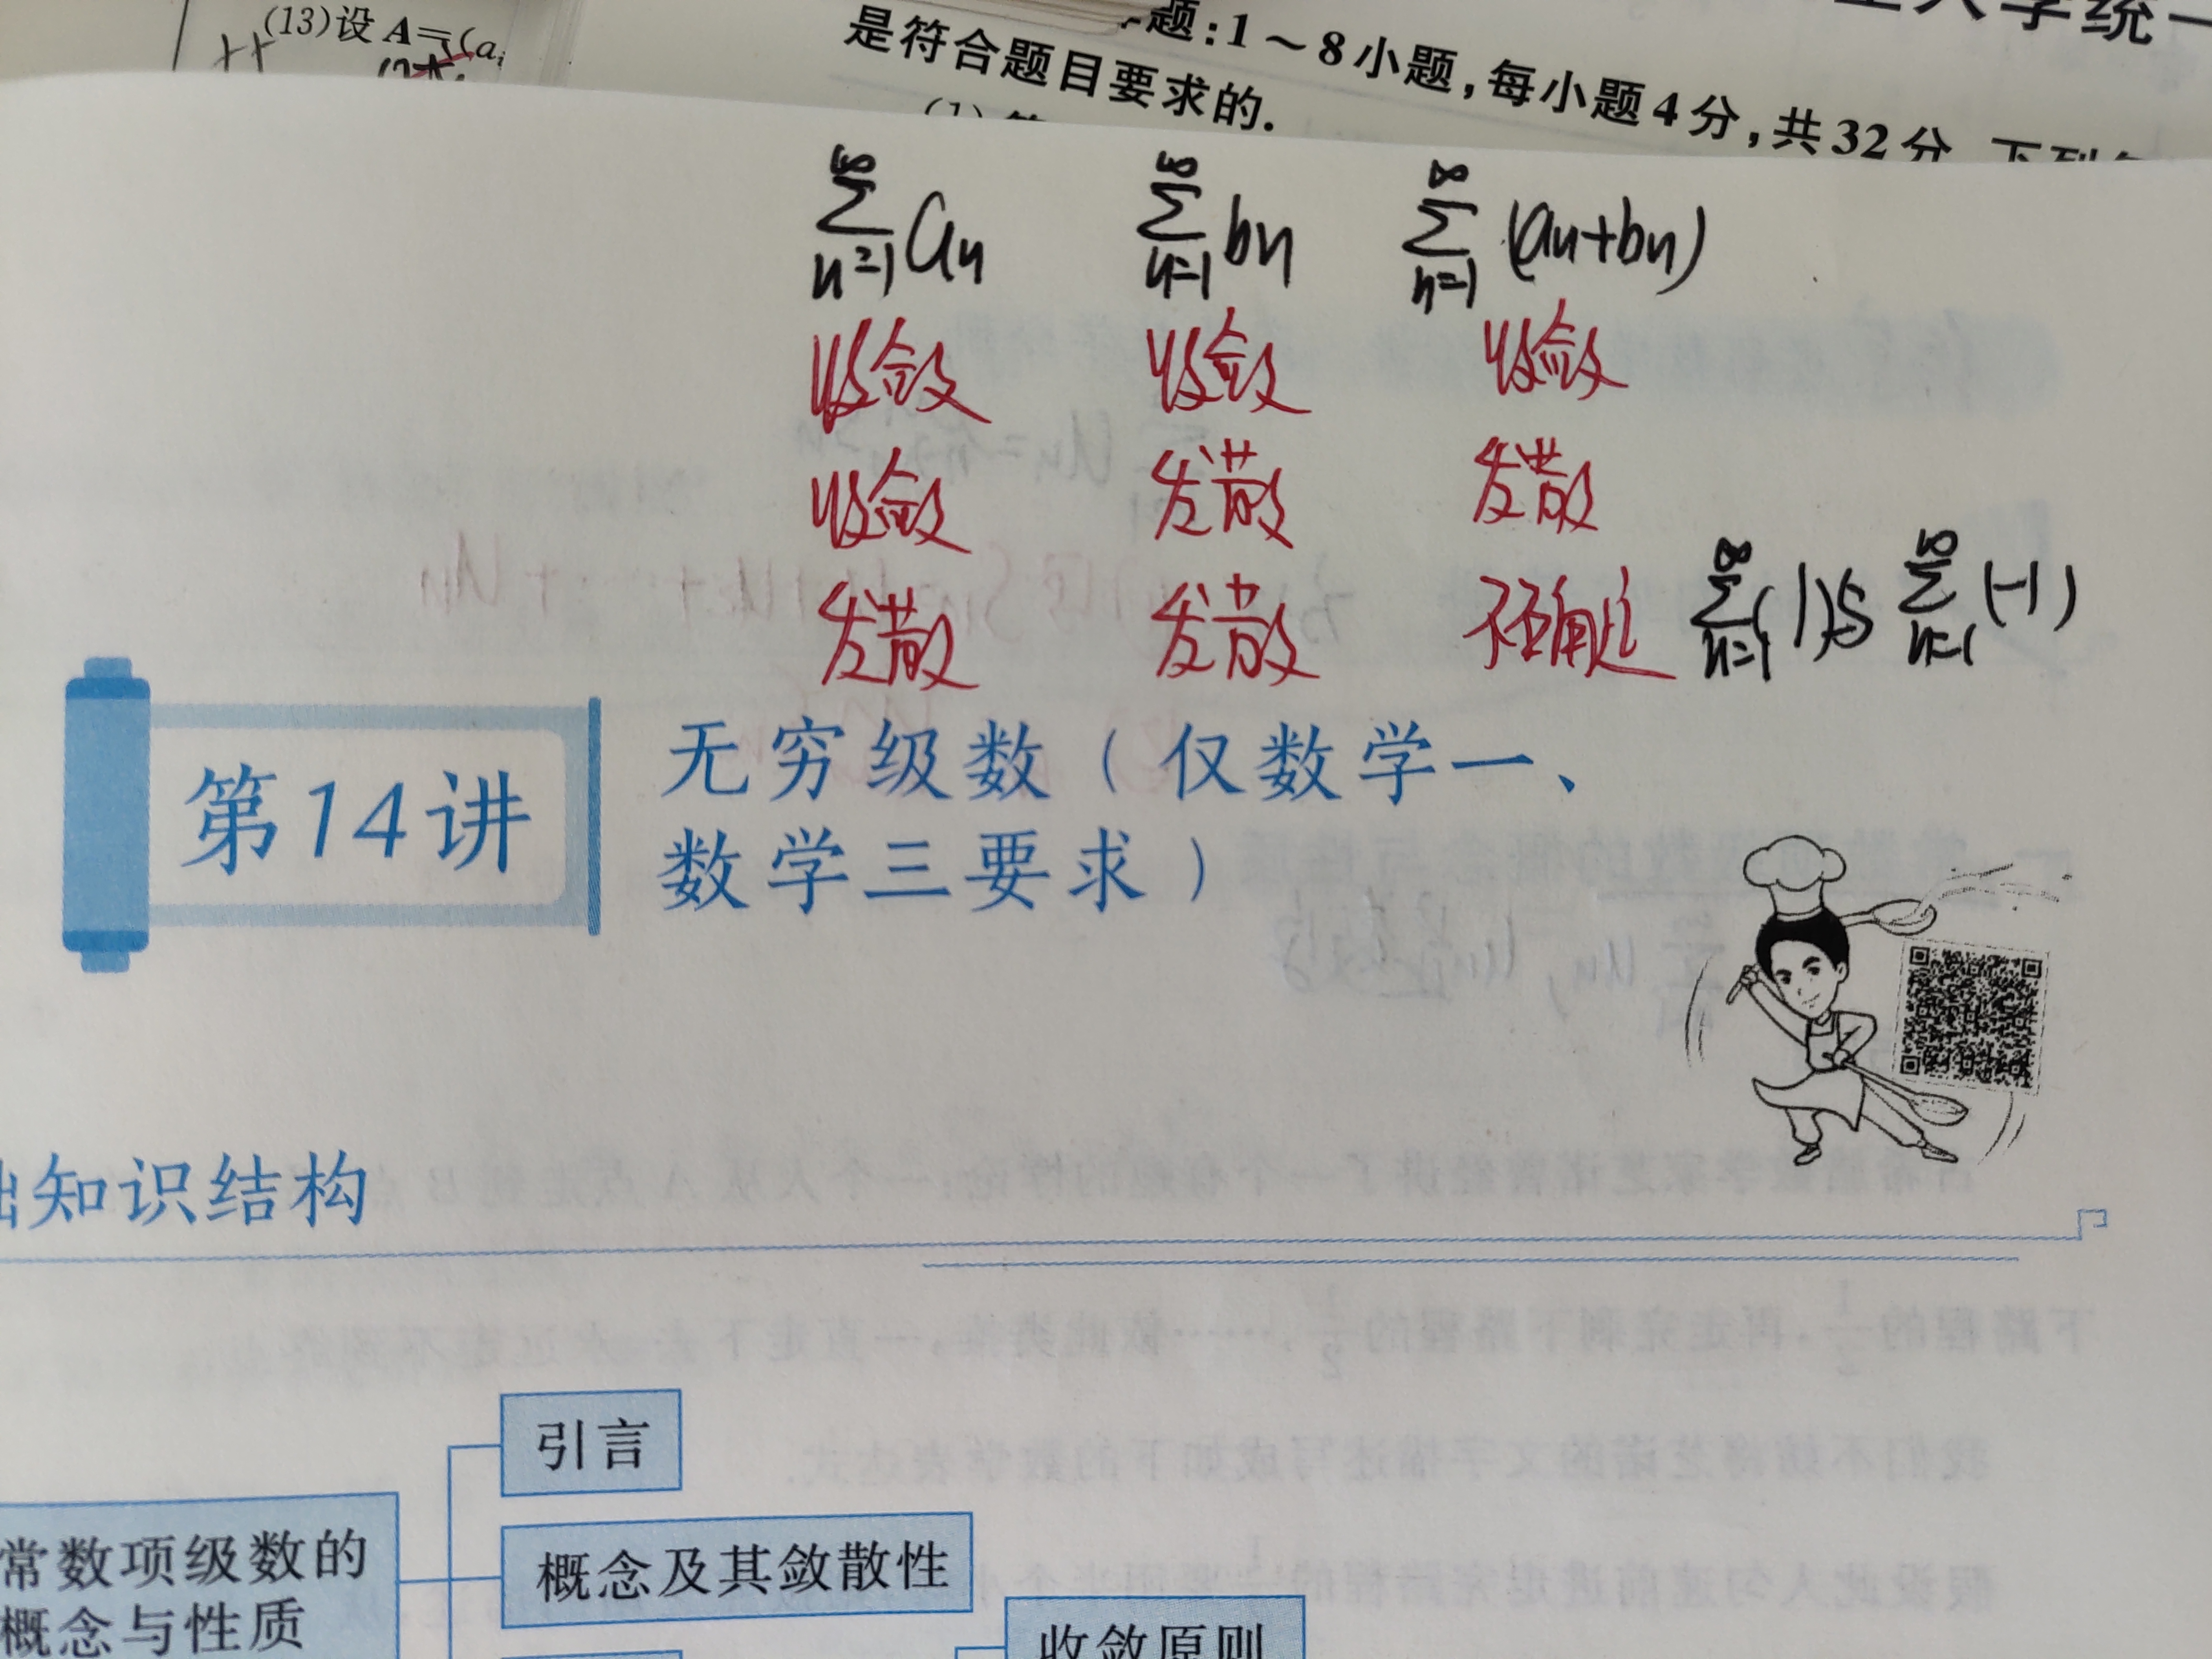 (13)设 A=(a
题:1～8小题,每小题4分,共32分
是符合题目要求的.
∞ ∞ ∞
∑ an ∑ bn ∑ (an+bn)
n=1 n=1 n=1
收敛 收敛 收敛
收敛 发散 发散
发散 发散 不确定 ∑(1)与 ∑(-1)
n=1 n=1
第14讲
无穷级数(仅数学一、
数学三要求)
知识结构
引言
常数项级数的
概念与性质
概念及其敛散性
收敛原则